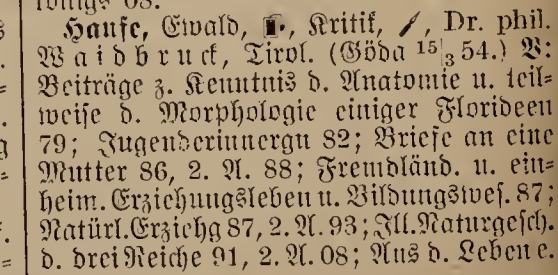 Haufe, Ewald, Kritik, Dr. phil.
Waidbruck, Tirol. (Göda 15|3 54.) V:
Beiträge z. Kenntnis d. Anatomie u. teil=
weise d. Morphologie einiger Florideen
79; Jugenderinnergn 82; Briefe an eine
Mutter 86, 2. A. 88; Fremdländ. u. ein=
heim. Erziehungsleben u. Bildungswes. 87;
Natürl. Erziehg 87, 2. A. 93; Ill. Naturgesch.
d. drei Reiche 91, 2. A. 08; Aus d. Leben e.